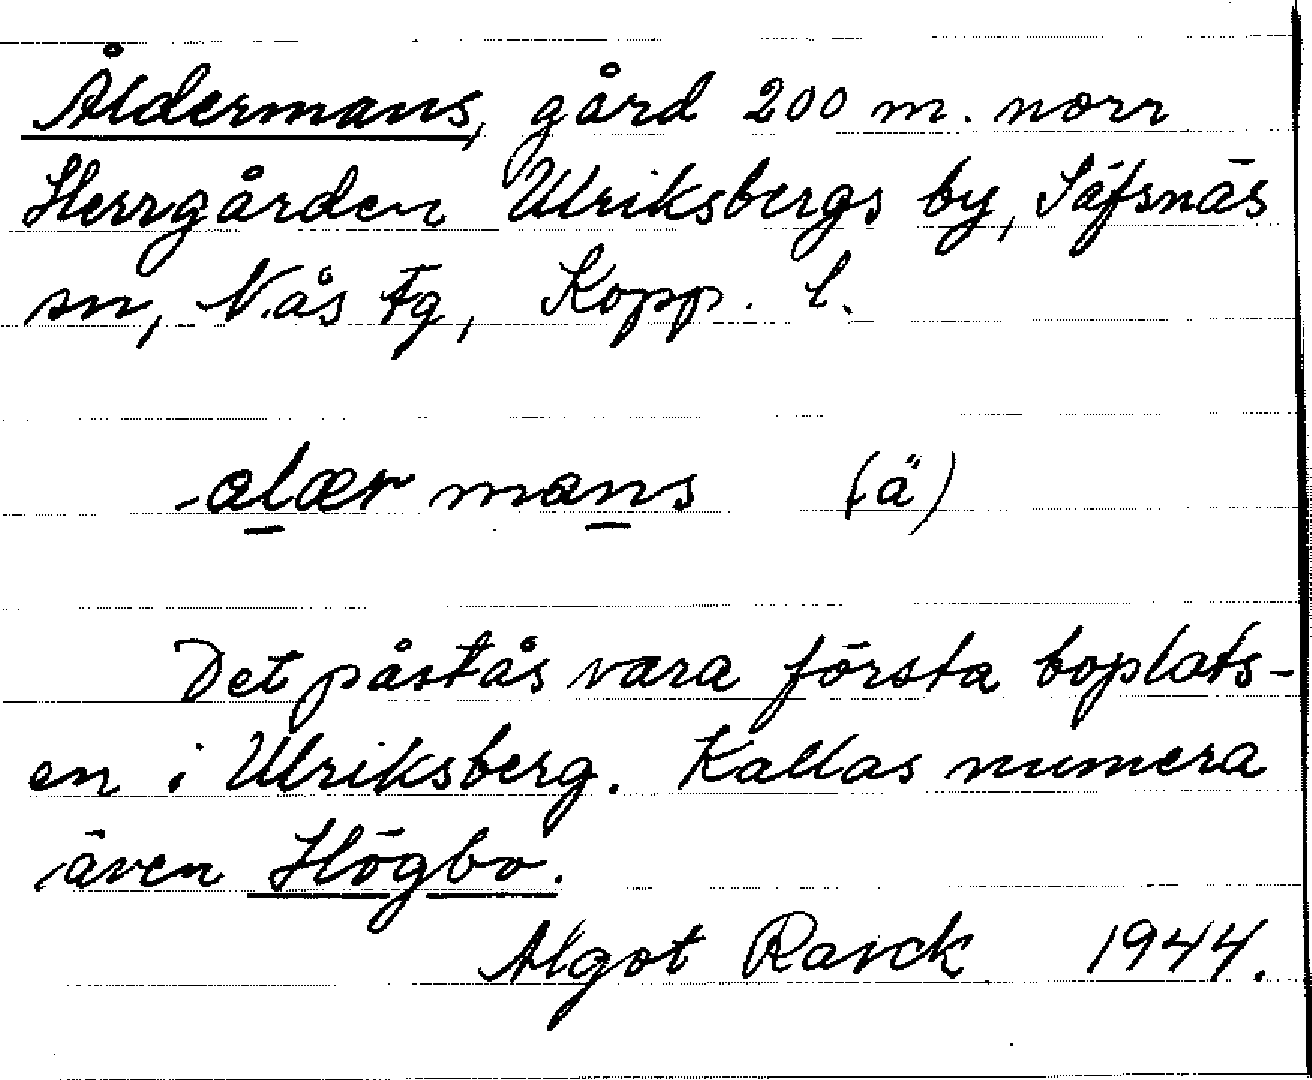 Åldermans, gård 200 m. norr
Herrgården Ulriksbergs by, Säfsnäs
sn, Nås tg, Kopp. l.
alær mans (ä)
Det påstås vara första boplats-
en i Ulriksberg. Kallas numera
även Högbo.
Algot Ravck 1944.